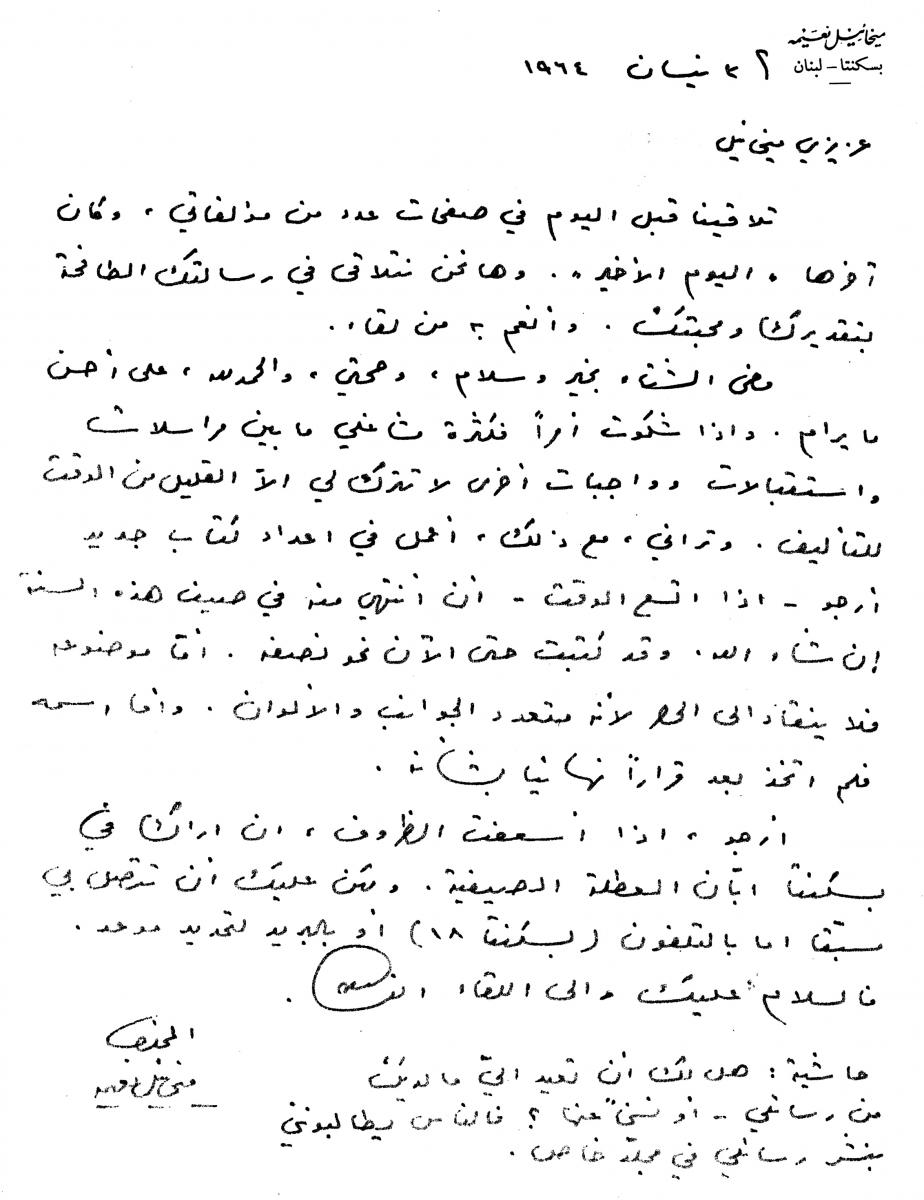 ميخائيل نعيمه
بسكنتا - لبنان
٢٣ نيسان ١٩٦٤
عزيزي ميخائيل
تلاقينا قبل اليوم في صفحات عدد من مؤلفاتي، وكان
آخرها "اليوم الأخير". وها نحن نتلاقى في رسالتك الطافحة
بتقديرك ومحبتك. وأنعم به من لقاء.
مضى الشتاء بخير وسلام، وصحتي، والحمد لله، على أحسن
ما يرام. واذا شكوت أمراً فكثرة مشاغلي ما بين مراسلات
واستقبالات وواجبات أخرى لا تترك لي الاّ القليل من الوقت
للتأليف. وتراني، مع ذلك، أعمل في اعداد كتاب جديد
أرجو - اذا اتسع الوقت - ان أنتهي منه في صيف هذه السنة
إن شاء الله. وقد كتبت حتى الآن نحو نصفه. امّا موضوعه
فلا ينقاد الى الحصر لأنه متعدد الجوانب والألوان. وأما اسمه
فلم اتخذ بعد قراراً نهائيا بشأنه.
أرجو، اذا أسعفت الظروف، ان اراك في
بسكنتا ابّان العطلة الصيفية. ولكن عليك أن تتصل بي
مسبّقا اما بالتلفون (بسكنتا ١٨) أو بالبريد لتحديد موعد.
فالسلام عليك والى اللقاء
المخلص
ميخائيل نعيمه
حاشية: هل لك أن تعيد اليّ ما لديك
من رسائلي - أو نسخاً عنها؟ فالناس يطالبونني
بنشر رسائلي في مجلّد خاص.